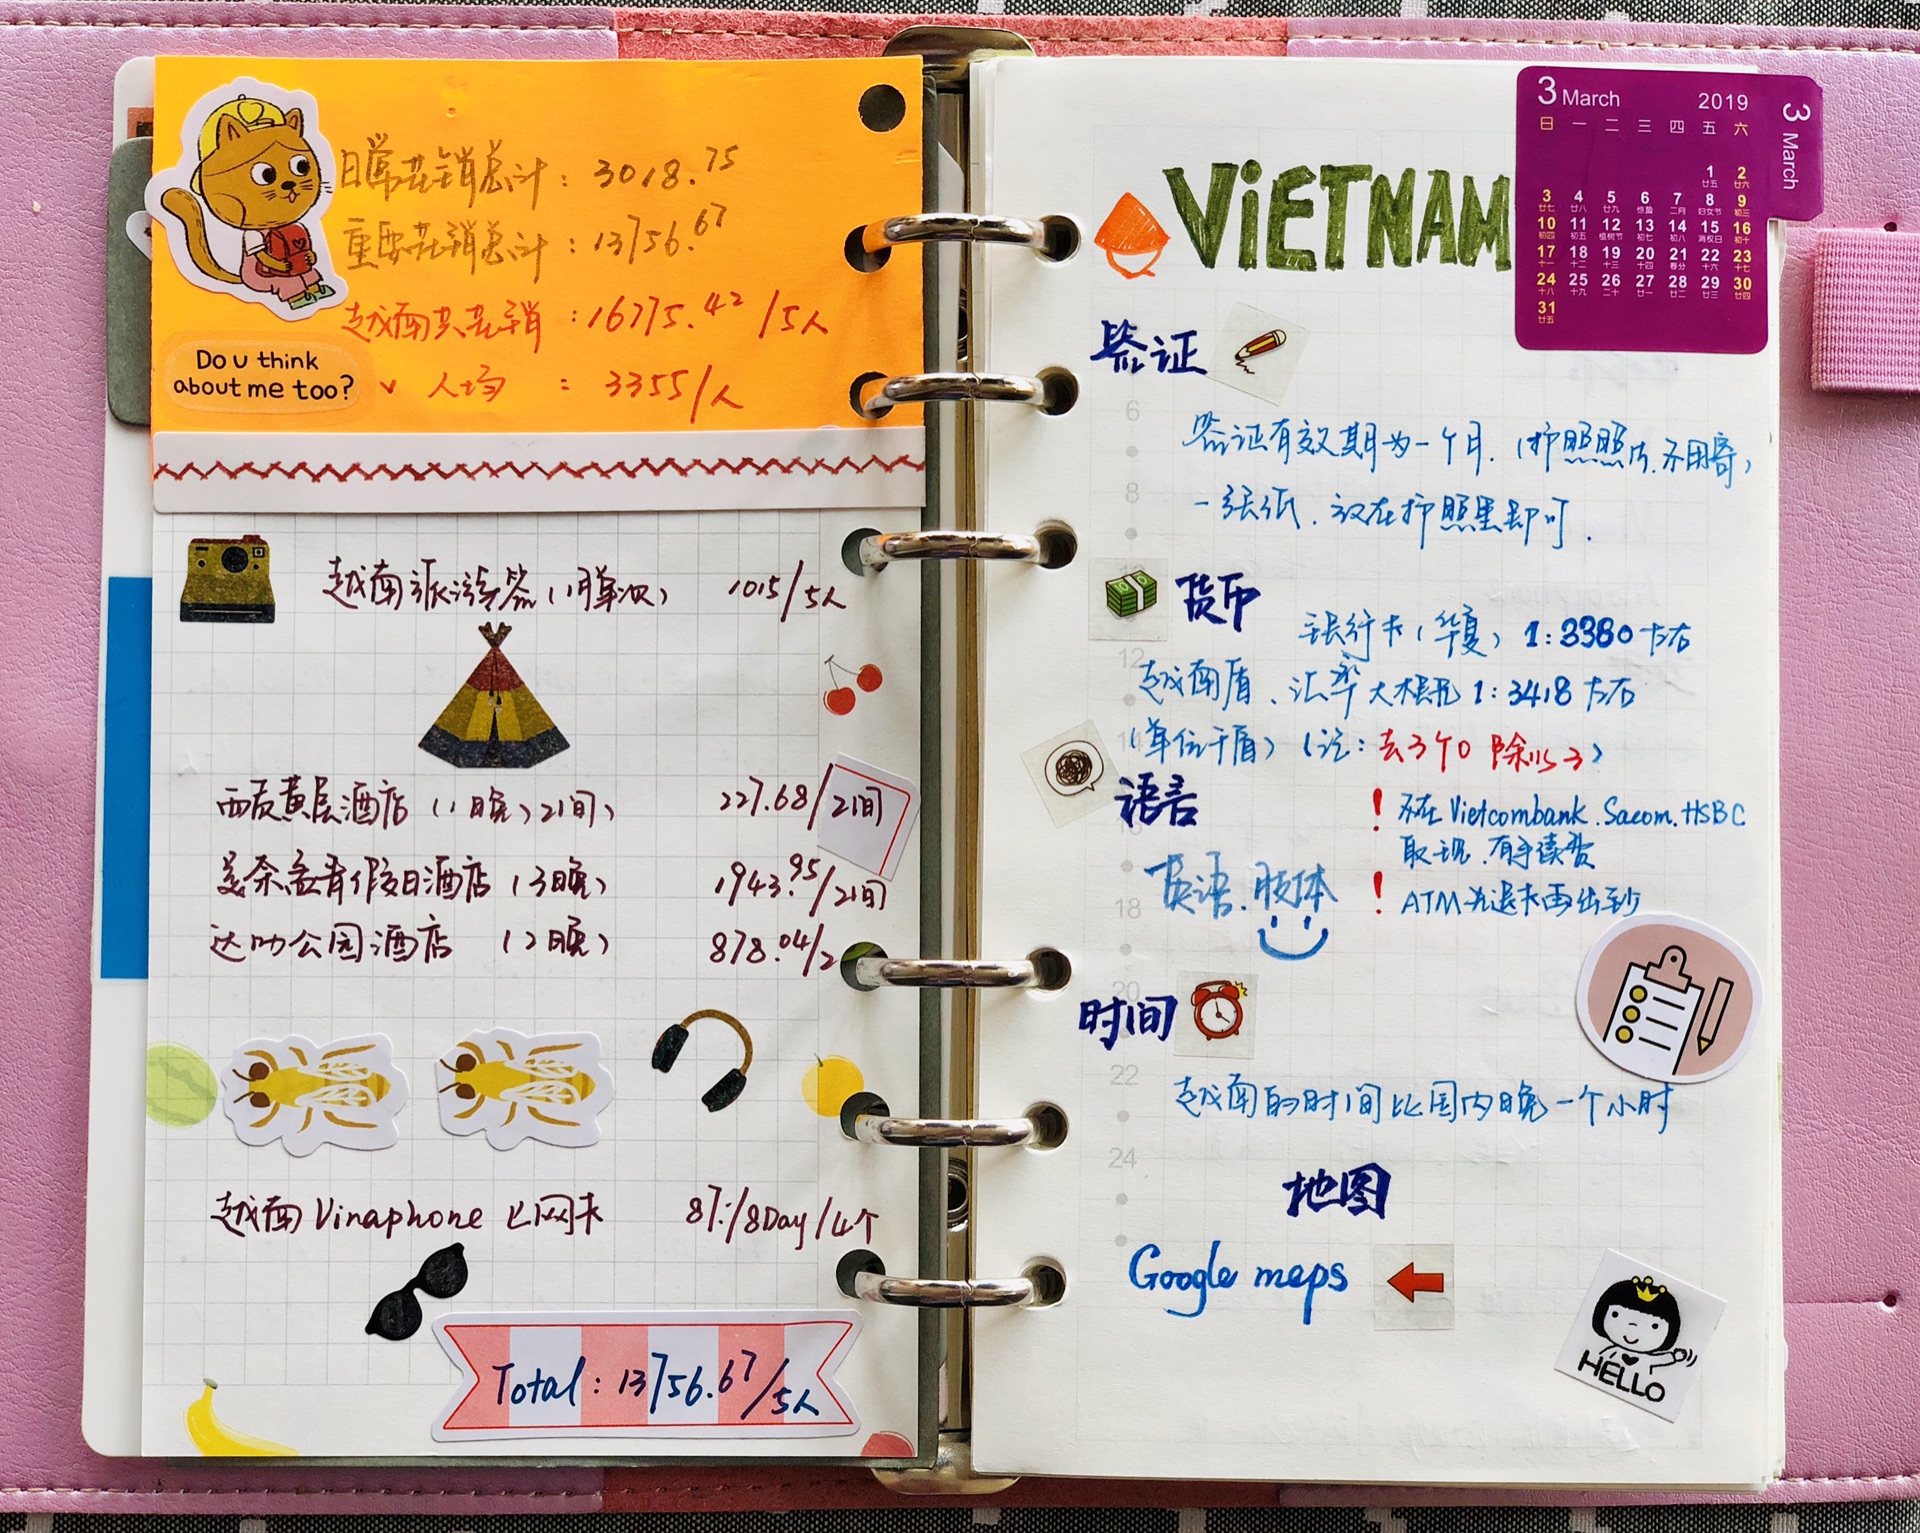 日常花销总计：3018.75
重要花销总计：13756.67
越南共花销：16775.42/5人
Do u think
about me too?
人均：3355/人
越南旅游签（1月单次） 1015/5人
西贡黄层酒店（1晚）2间） 227.68/2间
美奈孟看假日酒店（3晚） 1943.95/2间
达叻公园酒店（2晚） 878.04/2
越南Vinaphone上网卡 87/8Day/4个
Total：13756.67/5人
VIETNAM
3 March 2019
日 一 二 三 四 五 六
1 2
3 4 5 6 7 8 9
10 11 12 13 14 15 16
17 18 19 20 21 22 23
24 25 26 27 28 29 30
31
3 March
签证
签证有效期为一个月.（护照照片.不用寄）
一张纸.放在护照里即可.
货币
银行卡（华夏）1:3380左右
越南盾、汇率大概在1:3418左右
（单位千盾）（记：去3个0 除以3）
语言
! 不在Vietcombank.Sacom.HSBC
取现.有手续费
英语.肢体
! ATM先退卡再出钞
时间
越南的时间比国内晚一个小时
地图
Google maps
HELLO
6
8
12
14
18
20
22
24